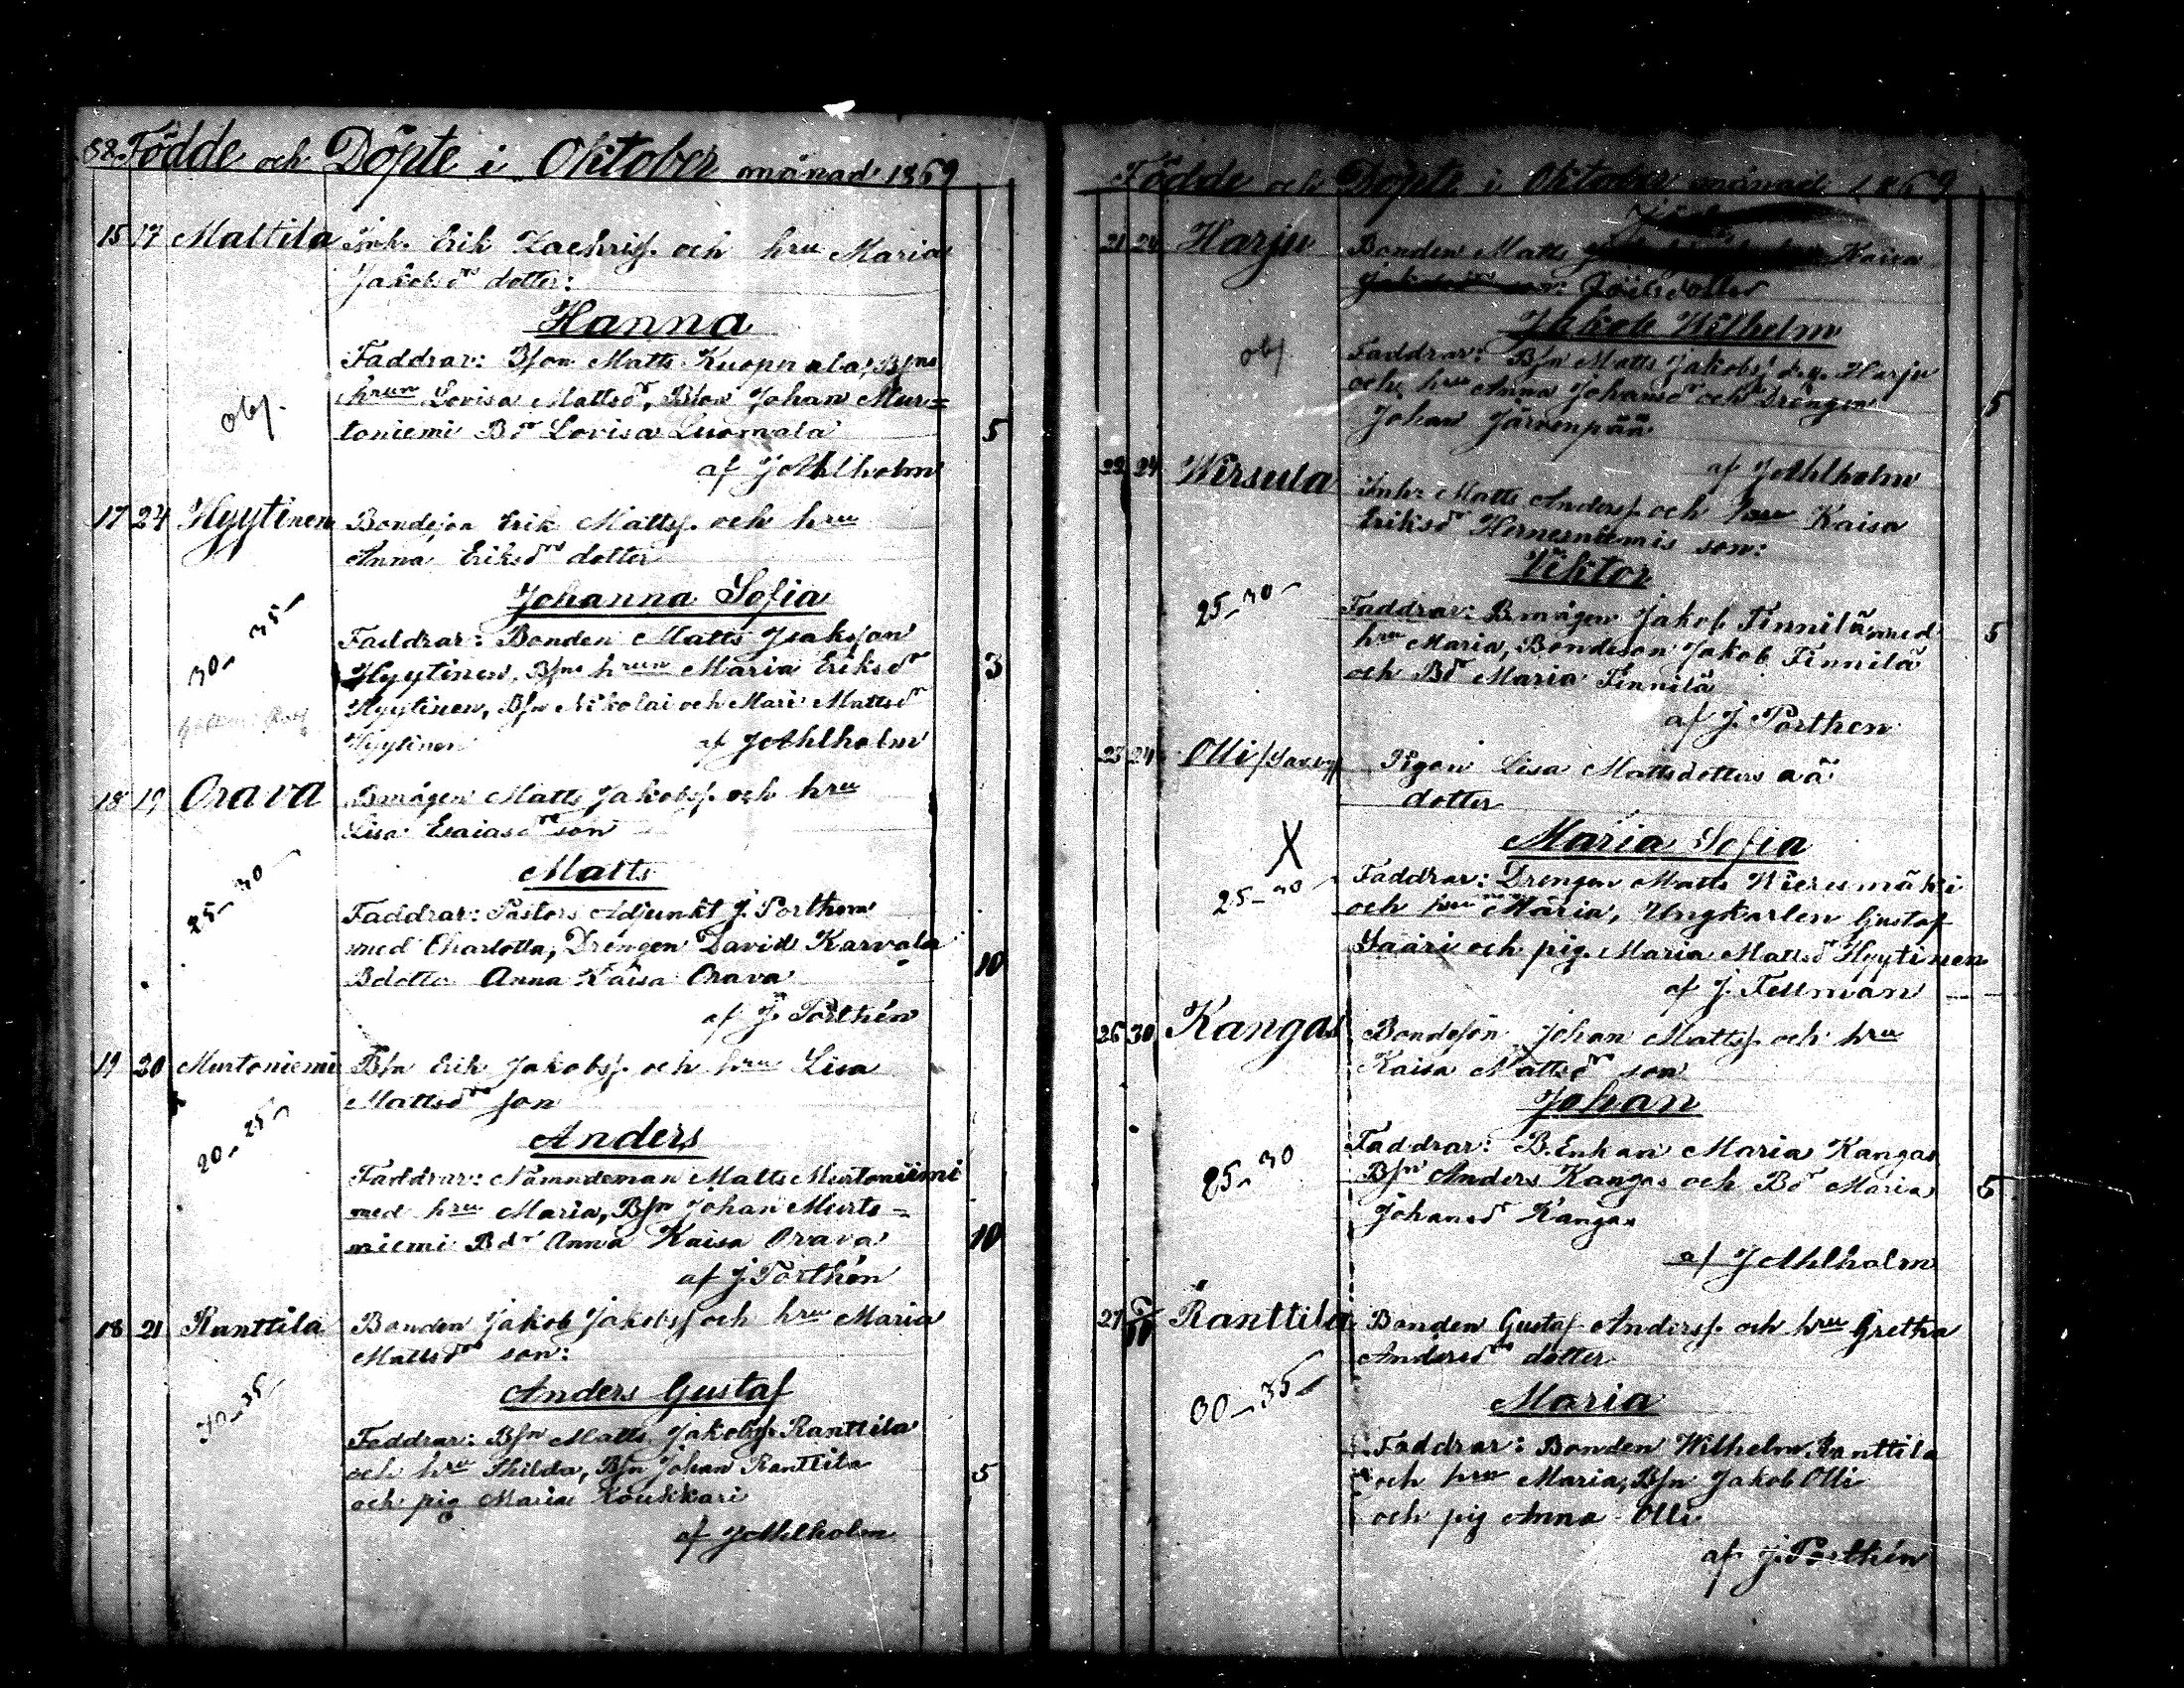 82. Födde och Döpte i Oktober månad 1869
15 17 Mattila Inh. Erik Zachriss. och hru Maria
Jakobsdrs dotter:
Hanna
Faddrar: Bson Matts Kuoppala, Bsns
hrun Lovisa Mattsdr, Bson Johan Mur=
obf. toniemi Bdr Lovisa Luomala 5
af J Ahlholm
17 24 Hyytinen Bondeson Erik Mattss. och hru
Anna Eriksdrs dotter
Johanna Sofia
30-35 Faddrar: Bonden Matts Isaksson
Hyytinen, Bsns hrun Maria Eriksdr 3
Hyytinen, Bsn Nikolai och Mari Mattsdr
Hyytinen af J Ahlholm
18 19 Orava Bmågen Matts Jakobss. och hru
Lisa Esaiasdrs son
Matts
25-30 Faddrar: Pastors Adjunkt J. Porthen
med Charlotta, Drengen David Karvala
Bdotter Anna Kaisa Orava 10
af J. Porthén
19 20 Murtoniemi Bsn Erik Jakobss. och hru Lisa
Mattsdrs son
20-25 Anders
Faddrar: Nämndeman Matts Murtoniemi
med hru Maria, Bsn Johan Murto=
niemi Bdr Anna Kaisa Orava 10
af J. Porthén
18 21 Ranttila Bonden Jakob Jakobss och hru Maria
Mattsdrs son:
30-35 Anders Gustaf
Faddrar: Bsn Matts Jakobss. Ranttila
och hru Hilda, Bsn Johan Ranttila 5
och pig Maria Koukkari
af J Ahlholm
Födde och Döpte i Oktober månad 1869
21 24 Harju Bonden Matts Kaisa
Joëlsdotters
Jakob Wilhelm
obf Faddrar: Bsn Matts Jakobs. d.y. Harju
och hru Anna Johansdr och Drängen 5
Johan Järvenpää
af J Ahlholm
22 24 Wirsula Inh: Matts Anderss. och hru Kaisa
Eriksdr Hernesniemis son:
Viktor
25-30 Faddrar: Bmågen Jakob Finnilä med 5
hru Maria, Bondeson Jakob Finnilä
och Bdr Maria Finnilä
af J. Porthen
23 24 Olli Pigan Lisa Mattsdotters oä
dotter
X Maria Sofia
25-30 Faddrar: Drengen Matts Wierumäki
och hru Maria, Ungkarlen Gustaf
Saari och pig. Maria Mattsdr Hyytinen
af J. Fellman
26 30 Kangas Bondeson Johan Mattss. och hru
Kaisa Mattsdrs son
Johan
25-30 Faddrar: B.Enkan Maria Kangas
Bsn Anders Kangas och Bdr Maria 5
Johansdr Kangas
af J Ahlholm
27 Ranttila Bonden Gustaf Anderss. och hru Gretha
Andersdrs dotter
30-35 Maria
Faddrar: Bonden Wilhelm Ranttila
och hru Maria, Bsn Jakob Olli
och pig Anna Olli
af J. Porthén